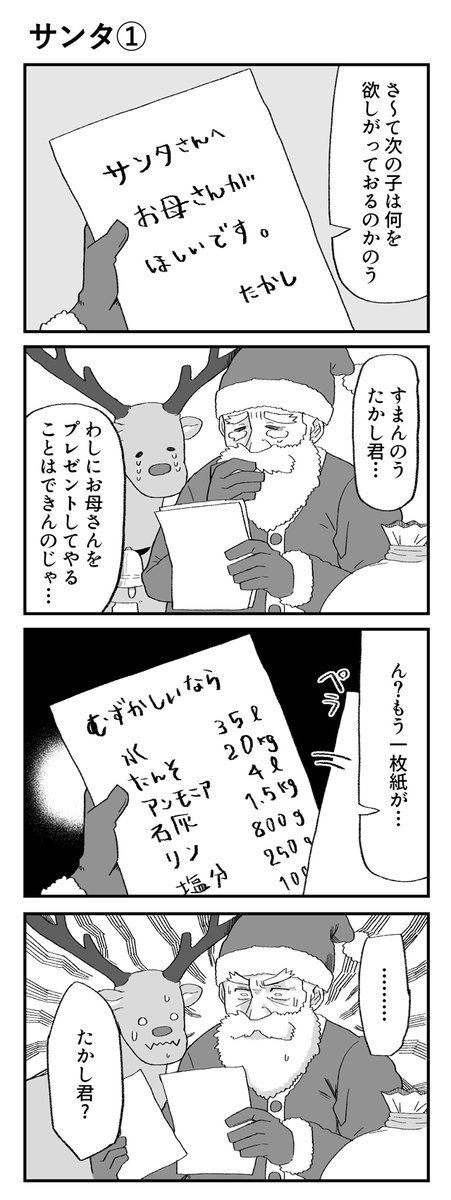 サンタ①
さ～て次の子は何を
欲しがっておるのかのう
サンタさんへ
お母さんが
ほしいです。
たかし
すまんのう
たかし君…
わしにお母さんを
プレゼントしてやる
ことはできんのじゃ…
ん？もう一枚紙が…
ペラ
むずかしいなら
水 35ℓ
たんそ 20kg
アンモニア 4ℓ
石灰 1.5kg
リン 800g
塩分 250g
100
………
たかし君？